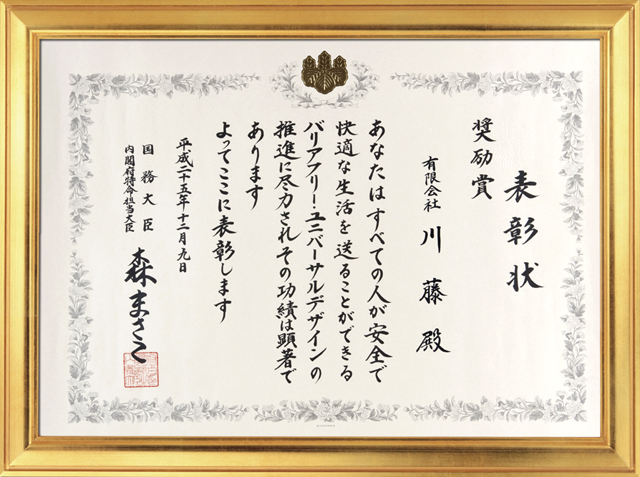 表彰状
奨励賞
有限会社 川藤 殿
あなたはすべての人が安全で
快適な生活を送ることができる
バリアフリー・ユニバーサルデザインの
推進に尽力されその功績は顕著で
あります
よってここに表彰します
平成二十五年十二月九日
国務大臣
内閣府特命担当大臣
森まさこ